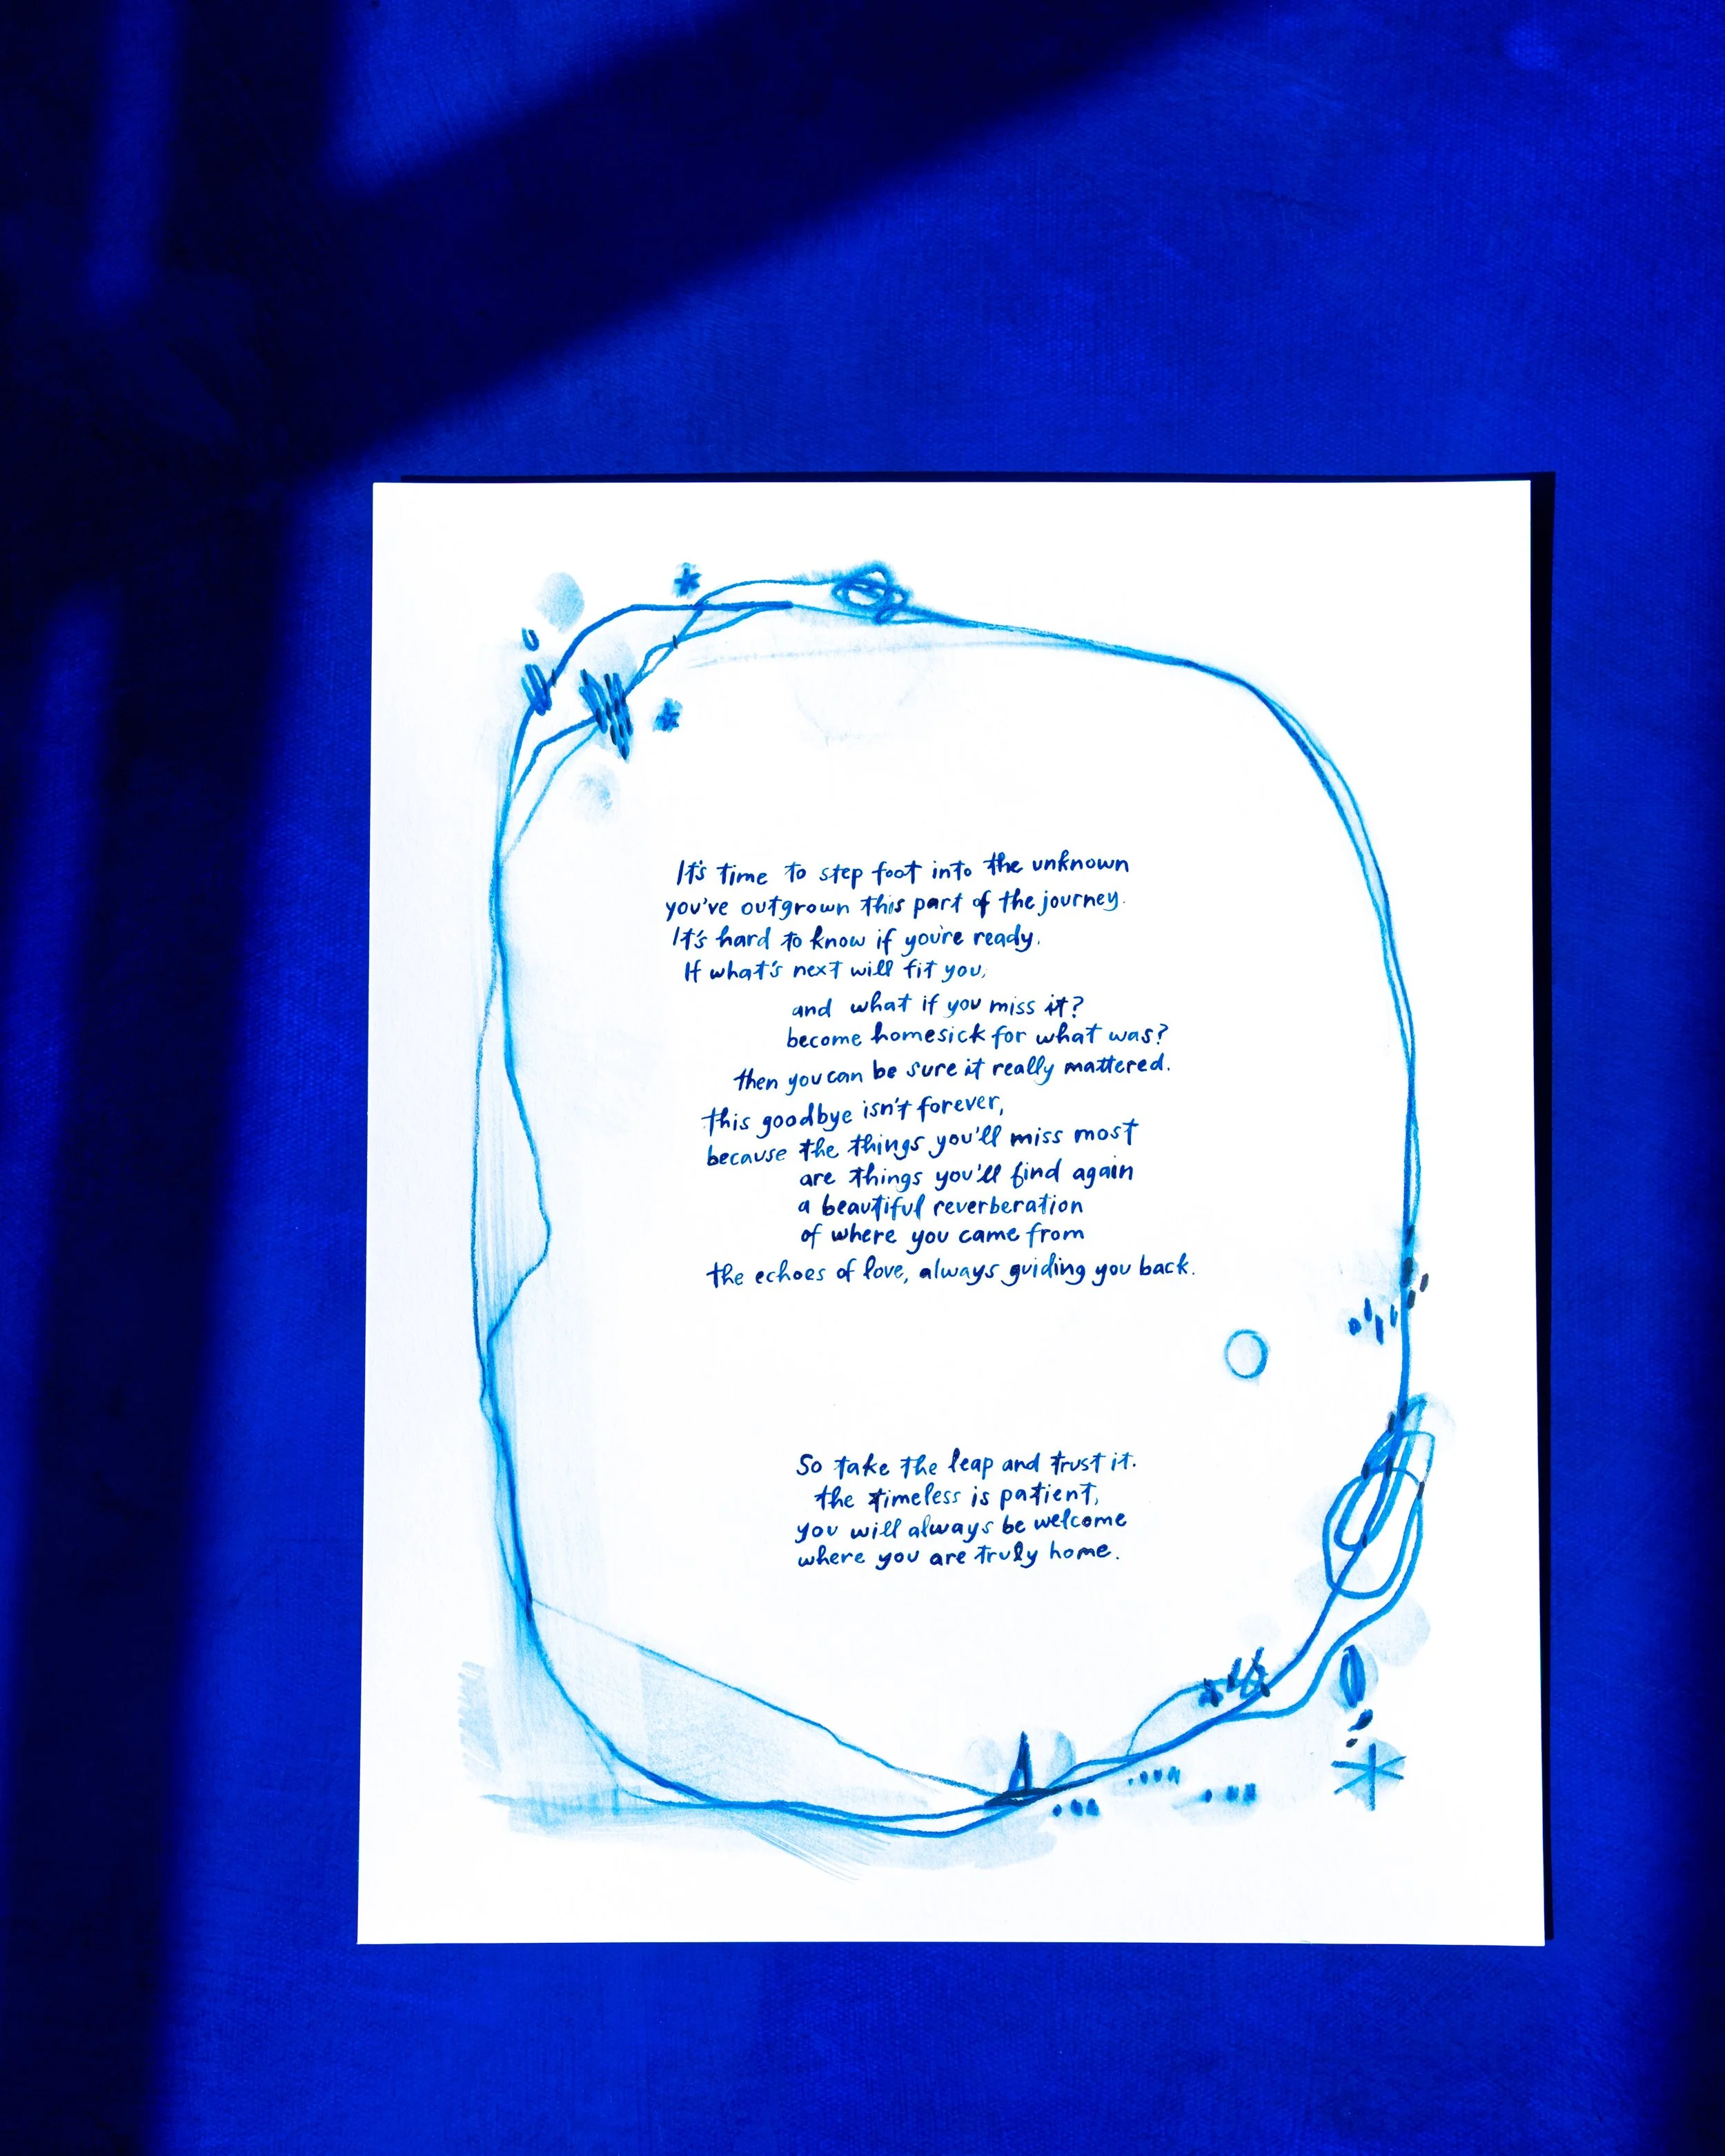 It's time to step foot into the unknown
you've outgrown this part of the journey.
It's hard to know if you're ready.
If what's next will fit you,
and what if you miss it?
become homesick for what was?
then you can be sure it really mattered.
this goodbye isn't forever,
because the things you'll miss most
are things you'll find again
a beautiful reverberation
of where you came from
the echoes of love, always guiding you back.
So take the leap and trust it.
the timeless is patient,
you will always be welcome
where you are truly home.